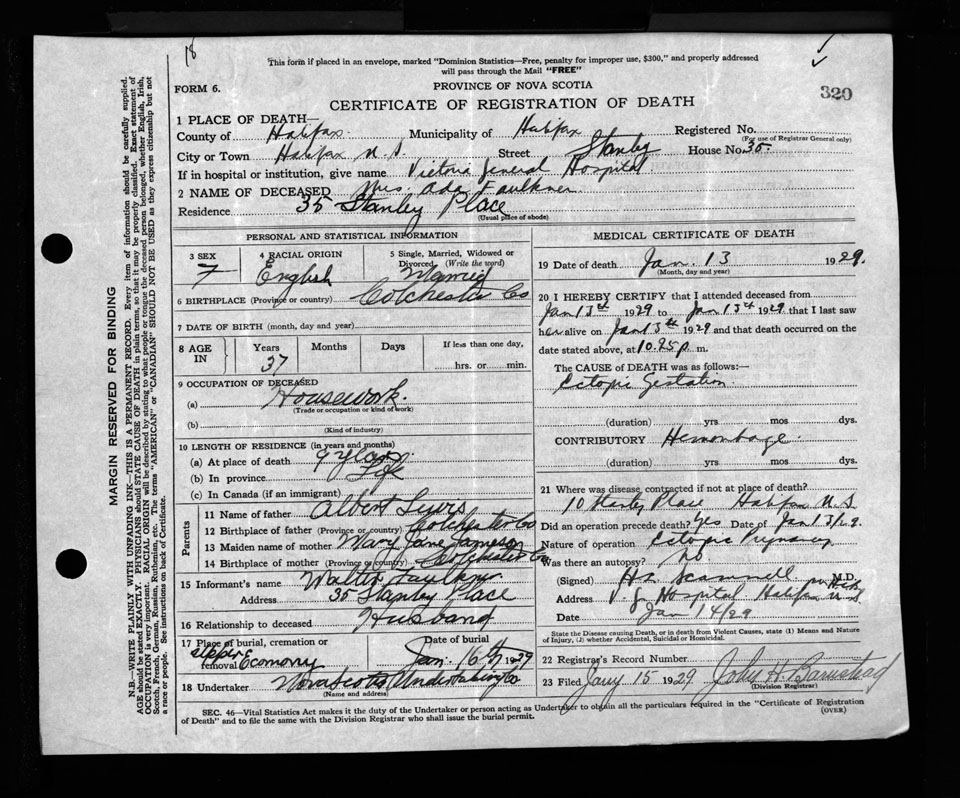 18
This form if placed in an envelope, marked "Dominion Statistics—Free, penalty for improper use, $300," and properly addressed
will pass through the Mail "FREE"
FORM 6.
PROVINCE OF NOVA SCOTIA
320
CERTIFICATE OF REGISTRATION OF DEATH
1 PLACE OF DEATH—
County of Halifax Municipality of Halifax Registered No.
(For use of Registrar General only)
City or Town Halifax N.S Street Stanley House No. 35
If in hospital or institution, give name Victoria General Hospital
2 NAME OF DECEASED Mrs Ada Faulkner
Residence 35 Stanley Place
(Usual place of abode)
PERSONAL AND STATISTICAL INFORMATION
3 SEX F
4 RACIAL ORIGIN English
5 Single, Married, Widowed or
Divorced (Write the word) Married
6 BIRTHPLACE (Province or country) Colchester Co
7 DATE OF BIRTH (month, day and year)
8 AGE IN Years 37 Months Days If less than one day,
hrs. or min.
9 OCCUPATION OF DECEASED
(a) Housework.
(Trade or occupation or kind of work)
(b)
(Kind of industry)
10 LENGTH OF RESIDENCE (in years and months)
(a) At place of death 9 years
(b) In province Life
(c) In Canada (if an immigrant)
Parents
11 Name of father Albert Lewis
12 Birthplace of father (Province or country) Colchester Co
13 Maiden name of mother Mary Jane Jameson
14 Birthplace of mother (Province or country) Colchester Co
15 Informant's name Walter Faulkner
Address 35 Stanley Place
16 Relationship to deceased Husband
17 Place of burial, cremation or
removal Upper Economy
Date of burial
Jan. 16th 1929
18 Undertaker Nova Scotia Undertaking Co
(Name and address)
MEDICAL CERTIFICATE OF DEATH
19 Date of death Jan. 13 1929.
(Month, day and year)
20 I HEREBY CERTIFY that I attended deceased from
Jan 13th 1929 to Jan 13th 1929 that I last saw
her alive on Jan 13th 1929 and that death occurred on the
date stated above, at 10.25 p. m.
The CAUSE of DEATH was as follows:—
Ectopic Gestation.
(duration) yrs mos dys.
CONTRIBUTORY Hemorrhage.
(duration) yrs mos dys.
21 Where was disease contracted if not at place of death?
10 Stanley Place Halifax N.S
Did an operation precede death? Yes Date of Jan 13/29
Nature of operation Ectopic Pregnancy
Was there an autopsy? No
(Signed) M.D.
Address V.G. Hospital Halifax
Date Jan 14/29
State the Disease causing Death, or in death from Violent Causes, state (1) Means and Nature
of Injury, (2) whether Accidental, Suicidal or Homicidal.
22 Registrar's Record Number
23 Filed Jany 15 1929 John H. Barnstead
(Division Registrar)
SEC. 46—Vital Statistics Act makes it the duty of the Undertaker or person acting as Undertaker to obtain all the particulars required in the "Certificate of Registration
of Death" and to file the same with the Division Registrar who shall issue the burial permit.
(OVER)
MARGIN RESERVED FOR BINDING
N.B.—WRITE PLAINLY WITH UNFADING INK—THIS IS A PERMANENT RECORD. Every item of information should be carefully supplied.
AGE should be stated EXACTLY. PHYSICIANS should STATE CAUSE OF DEATH in plain terms, so that it may be properly classified. Exact statement of
OCCUPATION is very important. RACIAL ORIGIN will be described by stating to what people or tongue the deceased person belonged, whether English, Irish,
Scotch, French, German, Russian, Ruthenian, etc. The terms "AMERICAN" or "CANADIAN" SHOULD NOT BE USED as they express citizenship but not
a race or people. See instructions on back of Certificate.